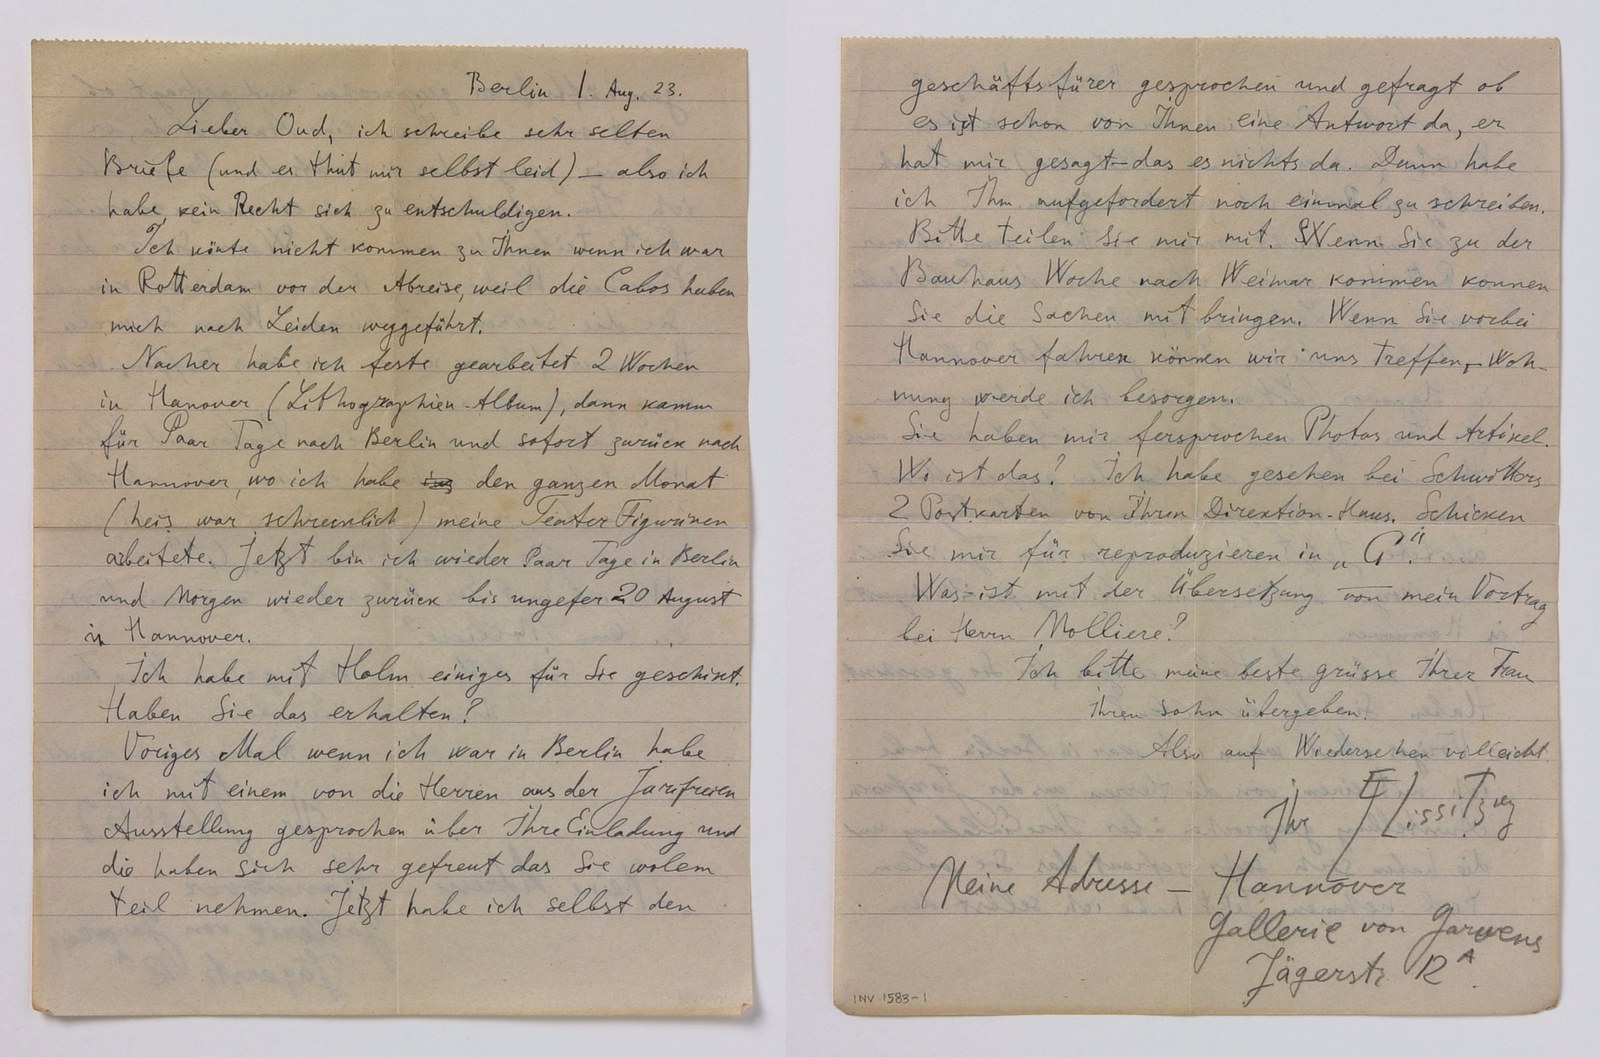 Berlin 1. Aug. 23.
Lieber Oud, ich schreibe sehr selten
Briefe (und es thut mir selbst leid) – also ich
habe kein Recht sich zu entschuldigen.
Ich könte nicht kommen zu Ihnen wenn ich war
in Rotterdam vor der Abreise, weil die Cabos haben
mich nach Leiden weggeführt.
Nacher habe ich feste gearbeitet 2 Wochen
in Hanover (Lithographien-Album), dann kamm
für Paar Tage nach Berlin und sofort zurück nach
Hannover, wo ich habe den ganzen Monat
(heis war schrecklich) meine Teater Figurinen
arbeitete. Jetzt bin ich wieder Paar Tage in Berlin
und Morgen wieder zurück bis ungefer 20 August
in Hannover.
Ich habe mit Holm einiges für Sie geschikt.
Haben Sie das erhalten?
Voriges Mal wenn ich war in Berlin habe
ich mit einem von die Herren aus der Jurifreien
Ausstellung gesprochen über Ihre Einladung und
die haben sich sehr gefreut das Sie wolem
teil nehmen. Jetzt habe ich selbst den
geschäftsfürer gesprochen und gefragt ob
es ist schon von Ihnen eine Antwort da, er
hat mir gesagt – das es nichts da. Dann habe
ich Ihm aufgefordert noch einmal zu schreiben.
Bitte teilen Sie mir mit. Wenn Sie zu der
Bauhaus Woche nach Weimar kommen konnen
Sie die Sachen mit bringen. Wenn Sie vorbei
Hannover fahren können wir uns treffen, Woh-
nung werde ich besorgen.
Sie haben mir fersprochen Photos und Artikel.
Wo ist das? Ich habe gesehen bei Schwitters
2 Postkarten von Ihren Direktion-Haus. Schicken
Sie mir für reproduzieren in „G".
Was ist mit der Übersetzung von mein Vortrag
bei Herrn Molliere?
Ich bitte meine beste grüsse Ihrer Frau
Ihren Sohn übergeben.
Also auf Wiedersehen villeicht
Ihr El Lissitzky
Meine Adresse – Hannover
Gallerie von Garvens
Jägerstr. 12 A.
INV 1583-1